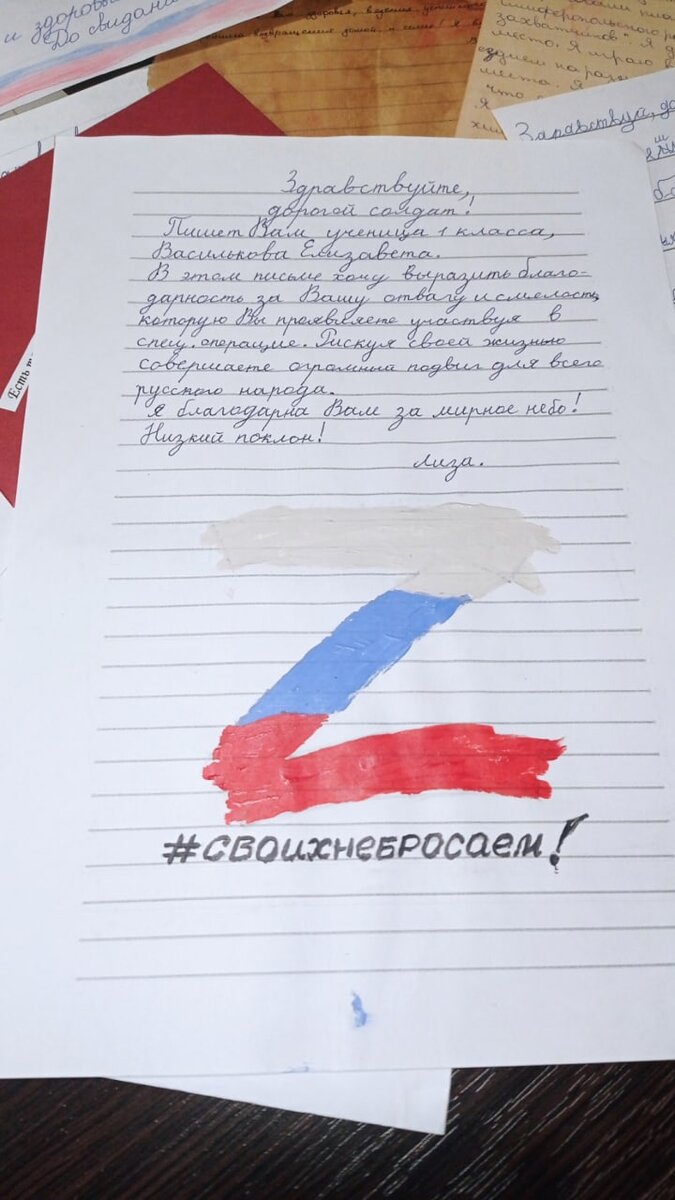 и здоровья
До свидани
здоровья,
возвращения домой, к семье! Я в
симферопольского ра
захватчиков". Я д
место. Я играю в
места. Я
что
Я
Здравствуй, до
Есть
Здравствуйте,
дорогой солдат!
Пишет Вам ученица 1 класса,
Василькова Елизавета.
В этом письме хочу выразить благо-
дарность за Вашу отвагу и смелость,
которую Вы проявляете участвуя в
спец. операцие. Рискуя своей жизнью
совершаете огромный подвиг для всего
русского народа.
Я благодарна Вам за мирное небо!
Низкий поклон!
Лиза.
#СВОИХНЕБРОСАЕМ!